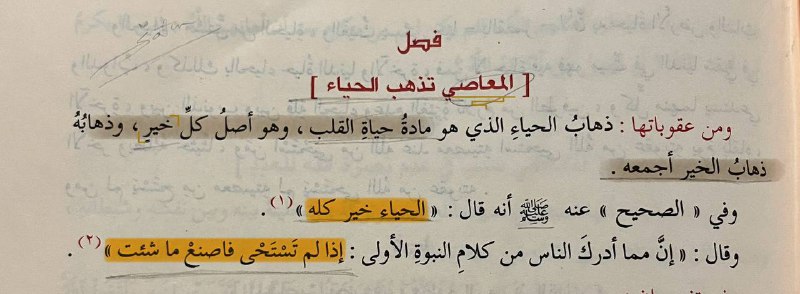 فصل
[ المعاصي تذهب الحياء ]
ومن عقوباتها : ذهابُ الحياءِ الذي هو مادةُ حياةِ القلب ، وهو أصلُ كلِّ خيرٍ ، وذهابُهُ
ذهابُ الخيرِ أجمعه .
وفي « الصحيح » عنه ﷺ أنه قال : « الحياء خير كله »(١) .
وقال : « إنَّ مما أدركَ الناس من كلامِ النبوةِ الأولى : إذا لم تَسْتَحْى فاصنعْ ما شئت »(٢) .